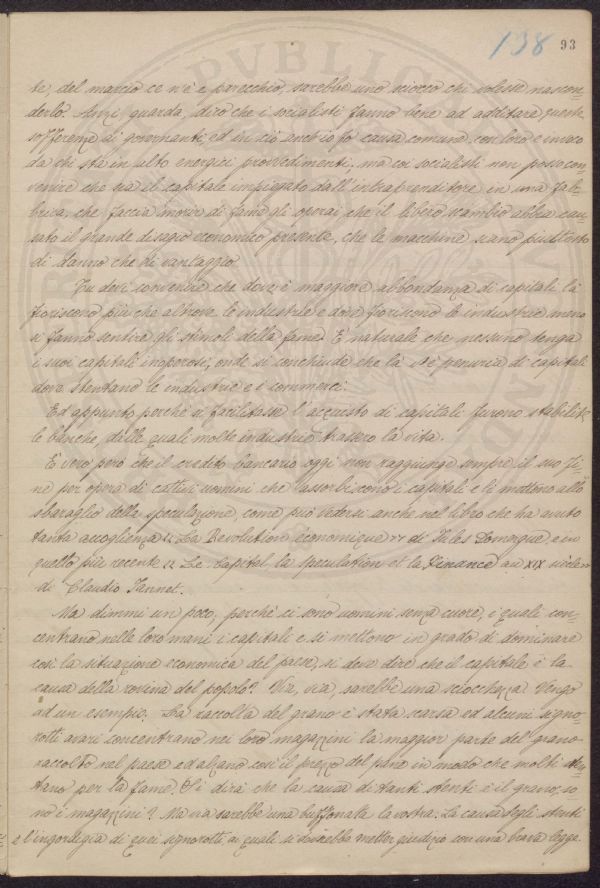 138 93
te, del marcio ce n'è e parecchio, sarebbe uno sciocco chi volesse nascon=
derlo. Anzi guarda, dico che i socialisti fanno bene ad additare queste
sofferenze ai governanti, ed in ciò anch'io fo causa comune con loro e invoco
da chi sta in alto energici provvedimenti; ma coi socialisti non posso con=
venire che sia il capitale impiegato dall'intraprenditore in una fab=
brica, che faccia morir di fame gli operai che il libero scambio abbia cau=
sato il grande disagio economico presente, che le macchine siano piuttosto
di danno che di vantaggio.
Tu devi convenire che dov'è maggiore abbondanza di capitali là
fioriscono più che altrove le industrie e dove fioriscono le industrie meno
si fanno sentire gli stimoli della fame. È naturale che nessuno tenga
i suoi capitali inoperosi, onde si conchiude che là v'è penuria di capitali
dove stentano le industrie e i commerci.
Ed appunto perchè si facilitasse l'acquisto di capitali furono stabilite
le banche, dalle quali molte industrie trassero la vita.
È vero però che il credito bancario oggi non raggiunge sempre il suo fi=
ne per opera di cattivi uomini che assorbiscono i capitali e li mettono allo
sbaraglio della speculazione, come può vedersi anche nel libro che ha avuto
tanta accoglienza „ La Revolution économique „ di Jules Domergue, e in
quello più recente „ Le Capital, la speculation et la Finance au XIX siècle „
di Claudio Jannet.
Ma dimmi un poco, perchè ci sono uomini senza cuore, i quali con=
centrano nelle loro mani i capitali e si mettono in grado di dominare
così la situazione economica del paese, si deve dire che il capitale è la
causa della rovina del popolo? Via, via, sarebbe una sciocchezza. Vengo
ad un esempio. La raccolta del grano è stata scarsa ed alcuni signo=
rotti avari concentrano nei loro magazzini la maggior parte del grano
raccolto nel paese ed alzano così il prezzo del pane in modo che molti sten=
tano per la fame. Si dirà che la causa di tanti stenti è il grano, so
no i magazzini? Ma via sarebbe una buffonata la vostra. La causa degli stenti
è l'ingordigia di quei signorotti, ai quali si dovrebbe metter giudizio con una brava legge.